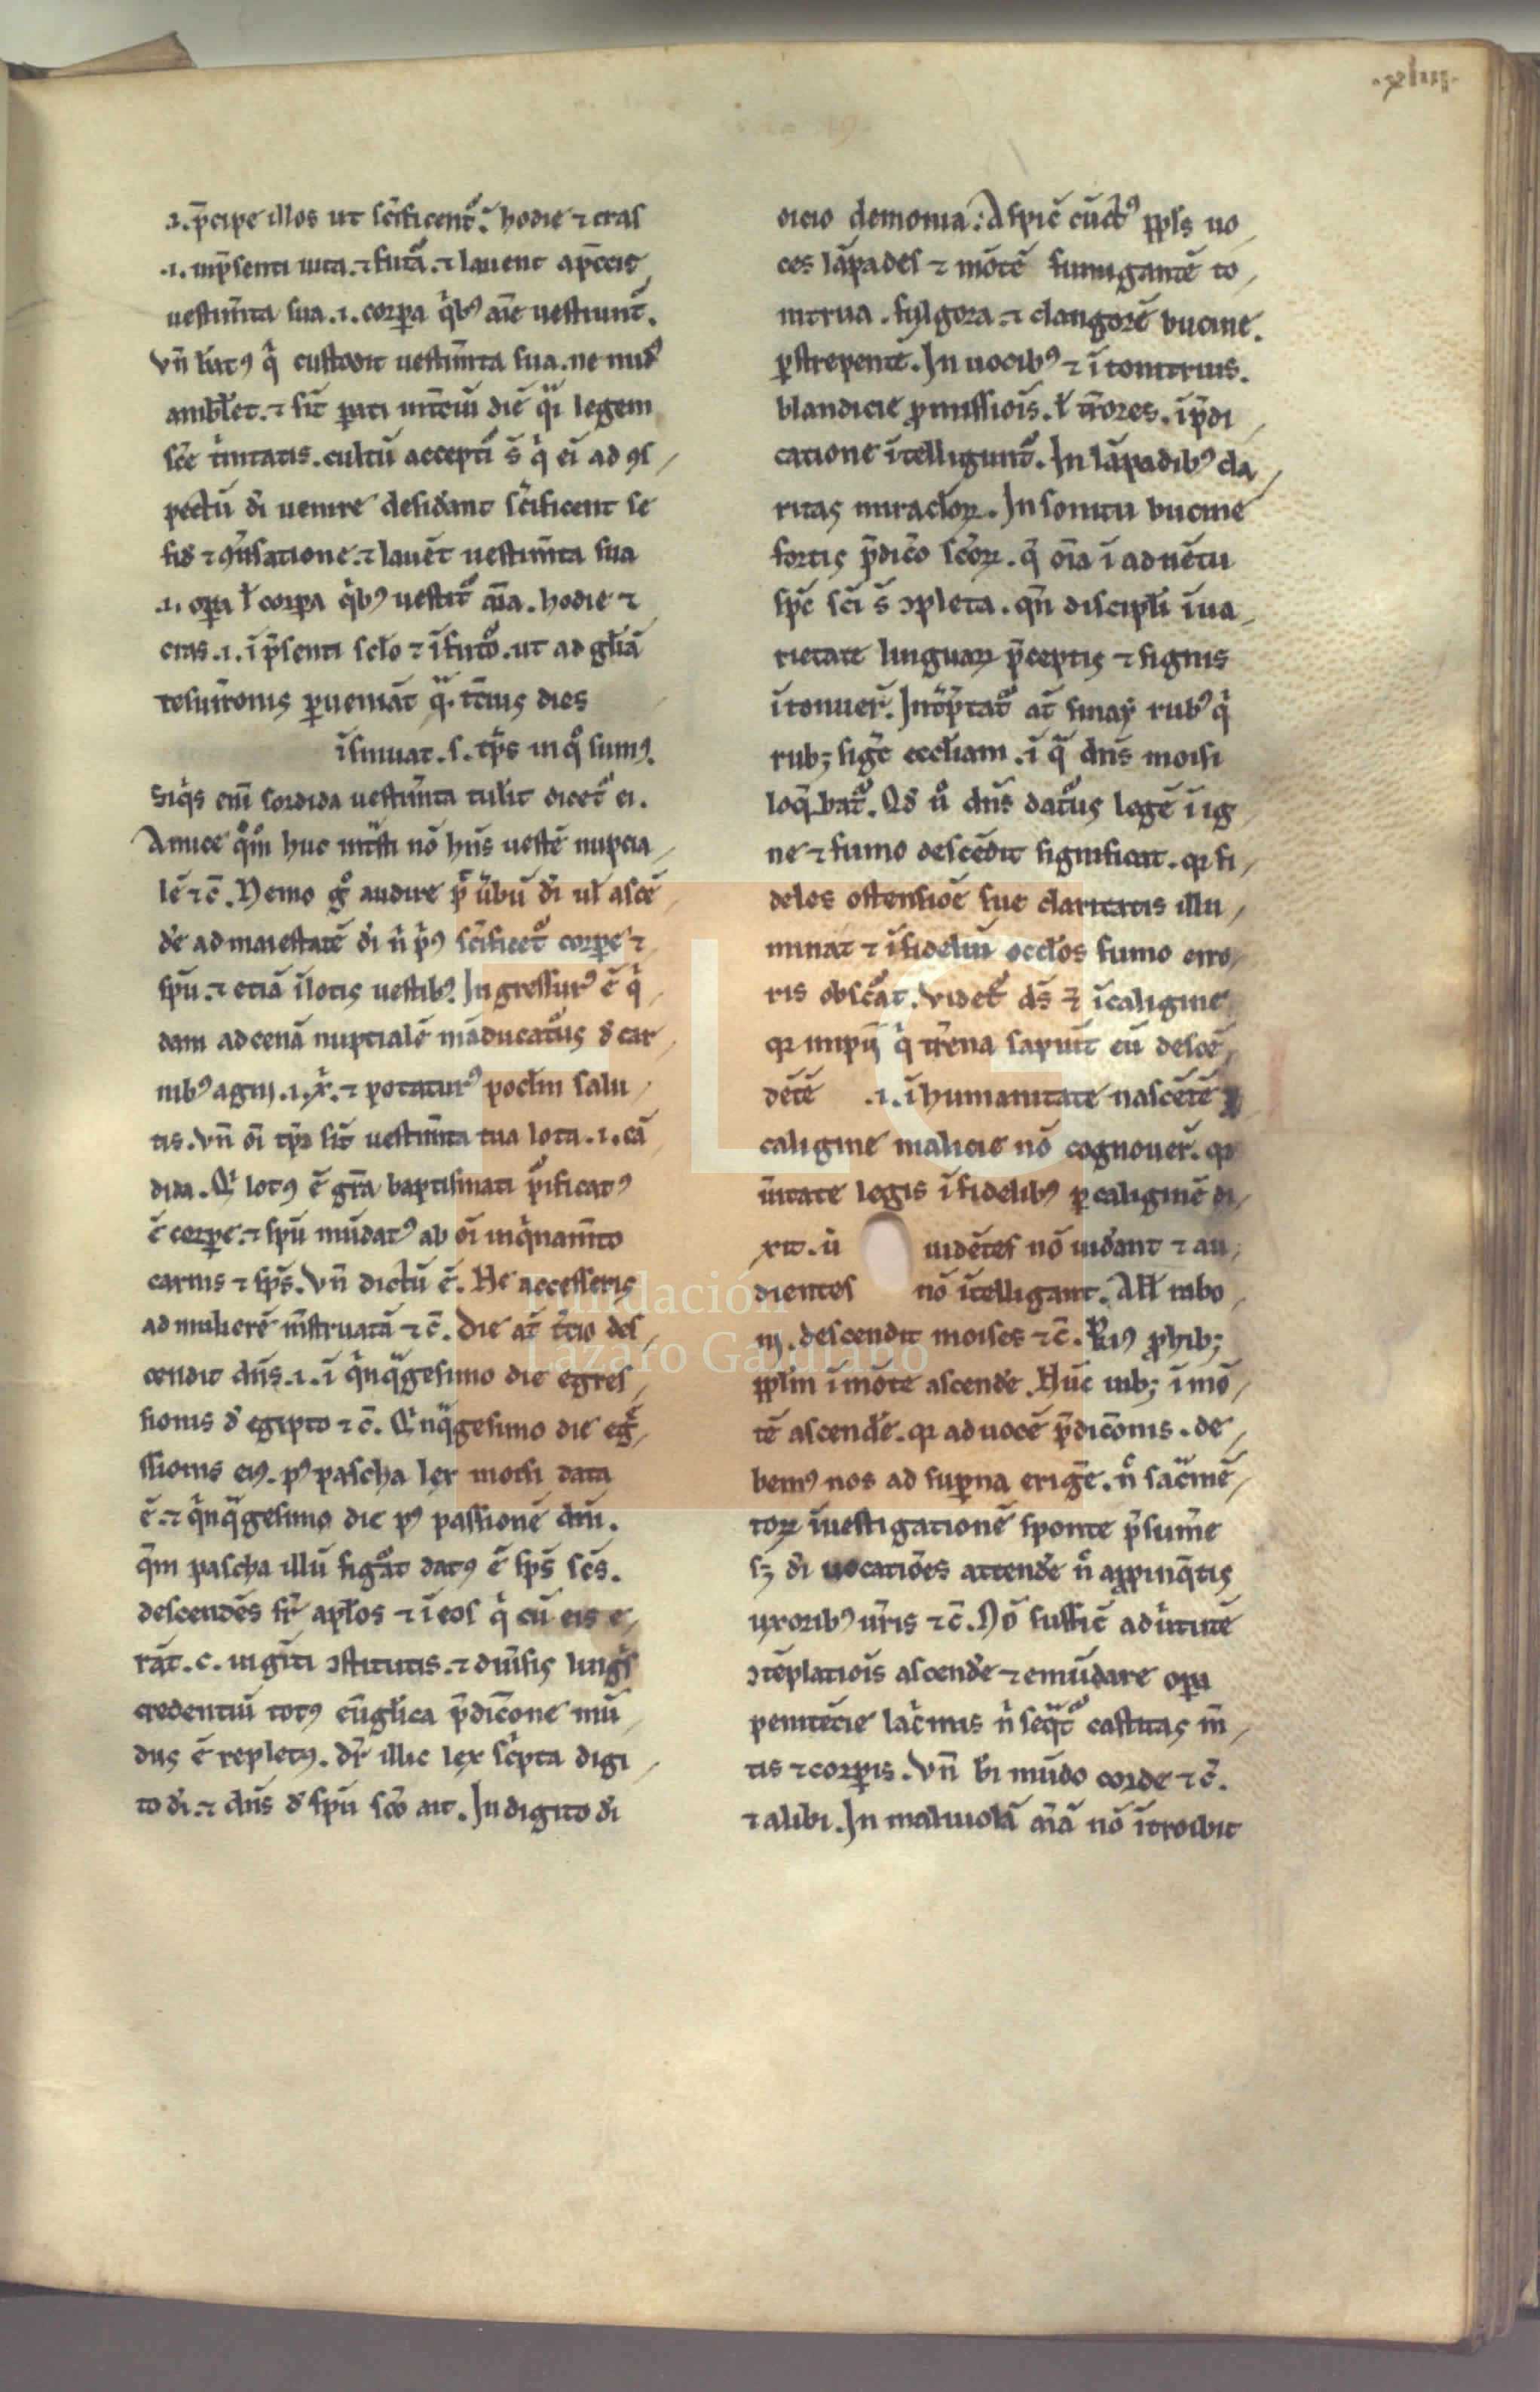 .xliii.
.2. p̄cipe illos ut sc̄ificent᷑. hodie ⁊ cras
.i. inp̄senti uita. ⁊ fut᷑a. ⁊ lauent a pc̄cis
uestim̄ta sua .i. corpa q̇bꝰ aīe uestiunt᷑.
vn̄ b̄atꝰ q̇ custodit uestim̄ta sua. ne nudꝰ
amblet. ⁊ sīt parati
legem
sc̄e t̓nitatis. cultū accepti s̄ q̇ ei ad ꝯs
pectū di uenire desid̄ant sc̄ificent se
fid̄ ⁊ ꝯuersatione. ⁊ lauēt uestim̄ta sua
.i. opa ł corpa q̇bꝰ uestit᷑ aīa. hodie ⁊
cras .i. ī p̄senti sclo ⁊ ī futo. ut ad glīa
resurr̄onis ꝑueniāt q̄. t̄cius dies
īsinuat. s. tp̄s in qͦ sumꝰ.
Siq̇s eni sordida uestim̄ta tulit dicet᷑ ei.
Amice qͦm̊ huc int̄sti nō hn̄s uestē nupcia
lē ⁊ c̄. Nemo gͦ audire p̄t ūbū di ul ascē
d̄e ad maiestatē di n̄ pͥꝰ sc̄ificet᷑ corpe ⁊
spū. ⁊ etiā ilotis uestibꝰ. Ingressurꝰ ē q̇
dam ad cenā nuptialē māducat᷑us d̄ car
nibꝰ agni .i. x̄. ⁊ potaturꝰ poclm salu
tis. vn̄ oī tp̄r sīt uestim̄ta tua lota .i. cā
dida. Q̇ lotꝰ ē grā baptismati pͥificatꝰ
ē corpe. ⁊ spū mūdatꝰ ab oī inq̇nam̄to
carnis ⁊ sp̄s. Vn̄ dictū ē. Ne accesseris
ad mulierē m̄struatā ⁊ c̄. Die at̄ t̓cio des
cendit dn̄s .i. ī q̇nq̄gesimo die egres
sionis d̄ egipto ⁊ c̄. Q̇nq̄gesimo die eg̊
ssionis eiꝰ. pꝰ pascha lex moisi data
ē. ⁊ q̇nq̄gesimo die pꝰ passionē dn̄i.
q̄m pascha illū figat᷑ datꝰ ē sp̄s sc̄s.
descendēs sr̄ aplos ⁊ ī eos q̇ cū eis e
rāt. c. uigīti ꝯstitutis. ⁊ diūsis lingis
credentiū totꝰ eūglica p̄dic̄one mū
dus ē repletꝰ. dr̄ illic lex sc̓pta digi
to di. ⁊ dn̄s d̄ spū sco ait. In digito di
eicio demonia. Aspic̄ cūctꝰ ppls uo
ces lāpades ⁊ mōtē fumigantē to
nitrua. fulgora. ⁊ clangorē bucine.
ꝑstrepentē. In uocibꝰ ⁊ ī tonitruis.
blandicie ꝓmissiois. ł t̄rores. ī p̄di
catione ītelligunt᷑. In lāpadibꝰ cla
ritas miraclorꝝ. In sonitu bucine
fortis p̄dicō sc̄orꝝ. q̄ oīa ī aduētu
sp̄c sci s̄ ꝯpleta. qn̄ discipli ī ua
rietate linguarꝝ p̄ceptis ⁊ signis
ītonuer̄. Int̓p̄tat᷑ at̄ sinay rubꝰ q̇
rub; sigt̄ eccliam. ī q̄ dn̄s moisi
loq̄bat᷑. Qd̄ ů dn̄s dat᷑us legē ī ig
ne ⁊ fumo descēdit significat. qꝛ fi
deles ostensioē sue claritatis illu
minat ⁊ īfideliū occlos fumo erro
ris obscat᷑. Videt᷑ d̄s ē ī caligine
qꝛ impij q̇ tr̄ena sapiūt eū descē
dētē .i. ī humanitate nascētē
caligine malicie nō cognouer̄. qꝛ
ūitate legis īfidelibꝰ ꝑ caliginē di
xit. ů uidētes nō uid̄ant ⁊ au
dientes nō ītelligant. All nibo
iij. descendit moises ⁊ c̄. Priꝰ ꝓhib;
pplm ī mōte ascende. Nūc iub; ī mō
tē ascend̄e. qꝛ ad uocē p̄dicōnis. de
bemꝰ nos ad supna eriḡe. n̊ sac̄mē
torꝝ īuestigationē sponte p̄sum̄e
s; di uocatiōes attend̄e n̊ appinq̄tis
uxoribꝰ ur̄is ⁊ c̄. Nō suffic̄ ad ūtutē
ꝯtēplatiois ascend̄e ⁊ emūdare opa
penitēcie lac̓mis n̊ seq̄t᷑ castitas m̄
tis ⁊ corpis. Vn̄ bi mūdo corde ⁊ c̄.
⁊ alibi. In maliuolā aīā nō ītroibit
Fundación
Lázaro Galdiano